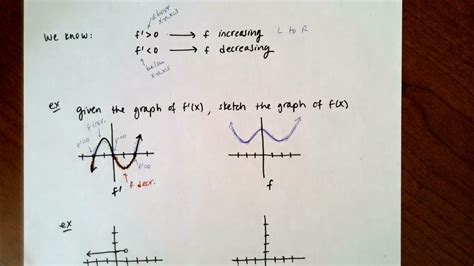 above
x-axis
we know: f'>0 → f increasing L to R
f'<0 → f decreasing
below
x-axis
ex given the graph of f'(x), sketch the graph of f(x)
f incr.
f'=0
f'=0
f'=0
f' f decr.
f
ex